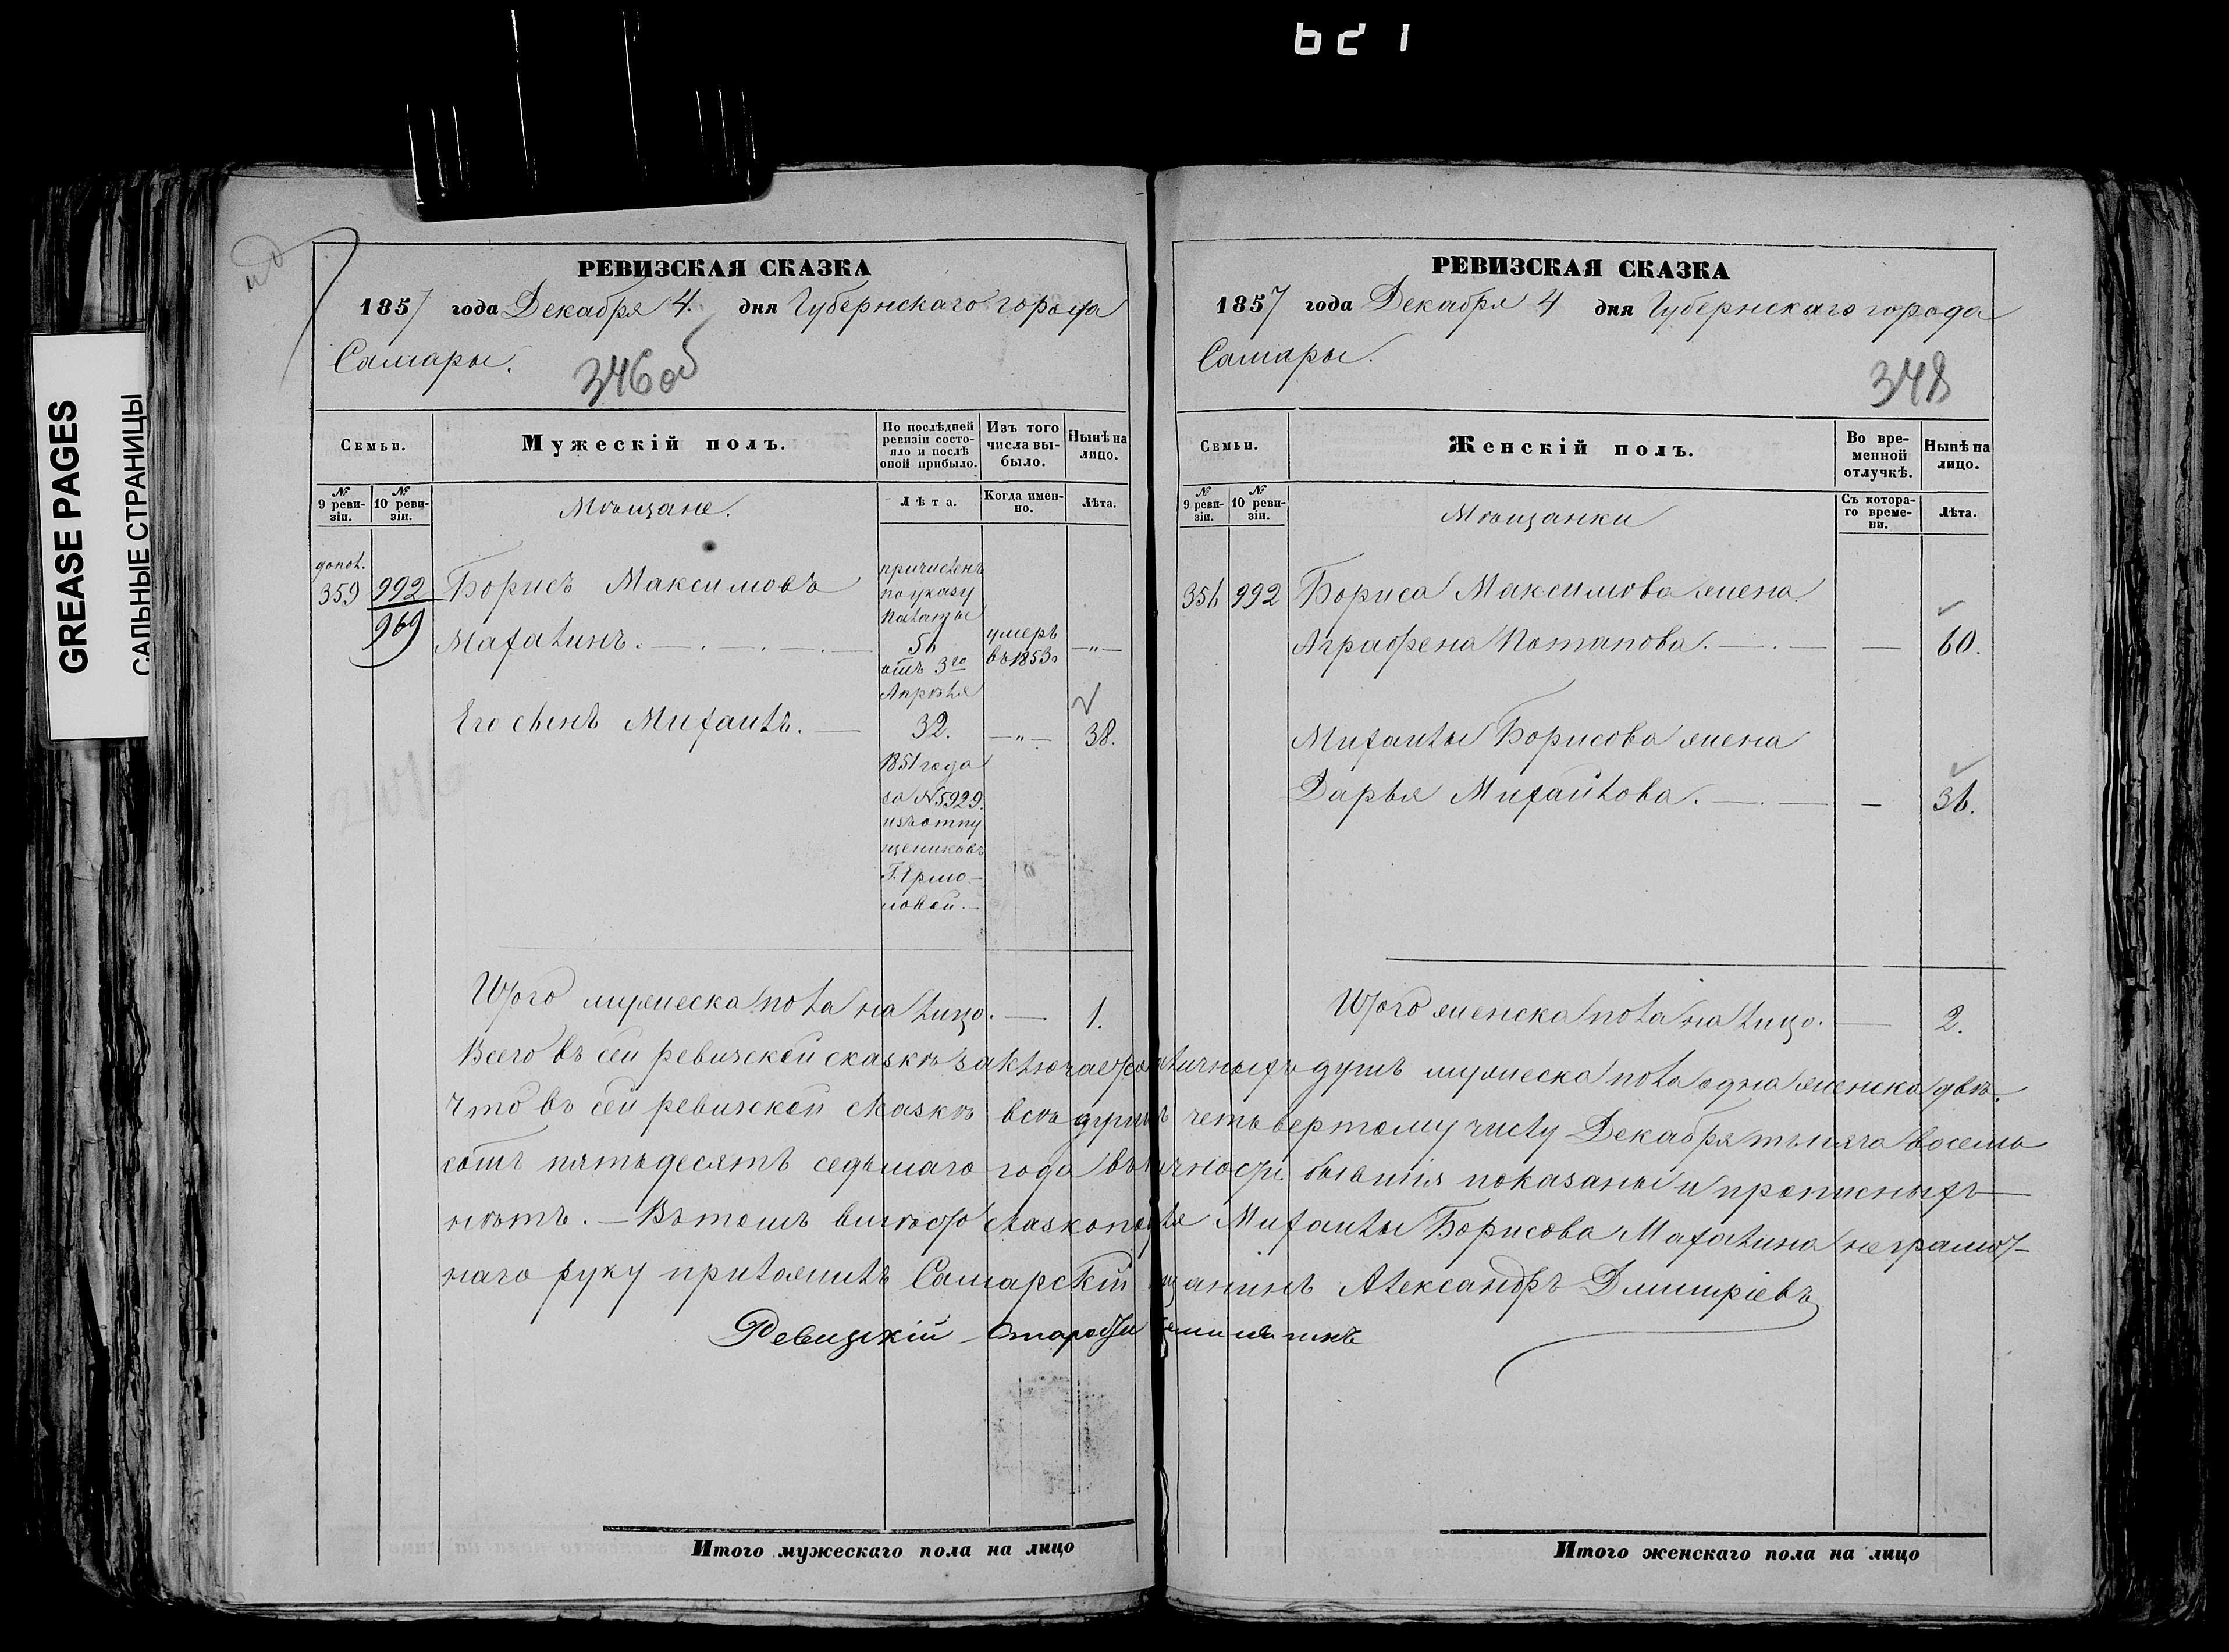 1 2 9
GREASE PAGES
САЛЬНЫЕ СТРАНИЦЫ
РЕВИЗСКАЯ СКАЗКА
1857 года Декабря 4. дня Губернскаго города
Самары.
346 об
Семьи.
Мужескій полъ.
По послѣдней ревизіи состояло и послѣ оной прибыло.
Изъ того числа выбыло.
Нынѣ на лицо.
№ 9 ревизіи.
№ 10 ревизіи.
Мѣщане.
Лѣта.
Когда именно.
Лѣта.
допол.
359 992 Борисъ Максимовъ
969
Махалинъ. 
причисленъ
по указу
палаты
56
отъ 3го
Апрѣля
умеръ
въ 1853.
—"—
Его сынъ Михаилъ. — 32. —"— 38.
1851 года
за №5929.
изъ отпу
щениковъ
Г. Ермо-
ловой.
Итого мужеска пола на лицо. — 1.
РЕВИЗСКАЯ СКАЗКА
1857 года Декабря 4 дня Губернскаго города
Самары.
348
Семьи.
Женскій полъ.
Во временной отлучкѣ.
Нынѣ на лицо.
№ 9 ревизіи.
№ 10 ревизіи.
Мѣщанки
Съ котораго времени.
Лѣта.
356 992 Бориса Максимова жена
Аграфена Потапова. — 60.
Михаилы Борисова жена
Дарья Михайлова. — 36.
Итого женска пола на лицо. — 2.
Всего въ сей ревизской сказкѣ заключается наличныхъ душъ мужеска пола одна женска двѣ.
Что въ сей ревизской сказкѣ всѣ души къ четвертому числу Декабря тысяча восемь
сотъ пятьдесятъ седьмаго года въ наличности бывшія показаны и прописныхъ
нѣтъ. — Въ томъ вмѣсто сказкоподателя Михаилы Борисова Махалина неграмот-
наго руку приложилъ Самарскій мѣщанинъ Александръ Дмитріевъ
Ревизскій Староста
Итого мужескаго пола на лицо
Итого женскаго пола на лицо